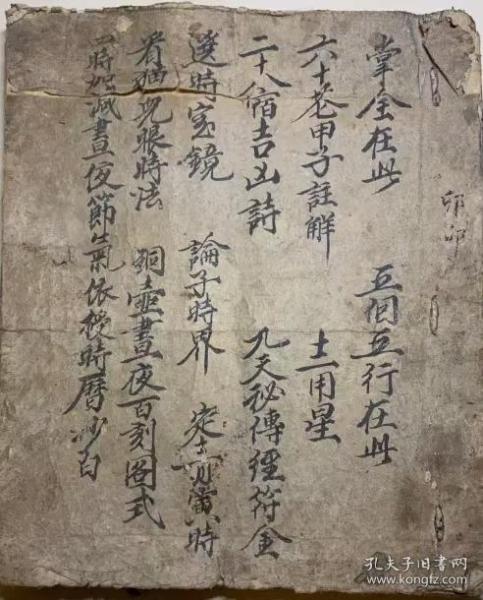 卯卯
掌全在此 五個五行在此
六十花甲子註解 土用星
二十八宿吉凶詩 九天秘傳經符金
選時宝鏡 論子時界 定寅時
看猫兒眼時法 銅壺晝夜百刻圖式
時加减晝夜節氣依授時曆抄白
孔夫子旧书网
www.kongfz.com